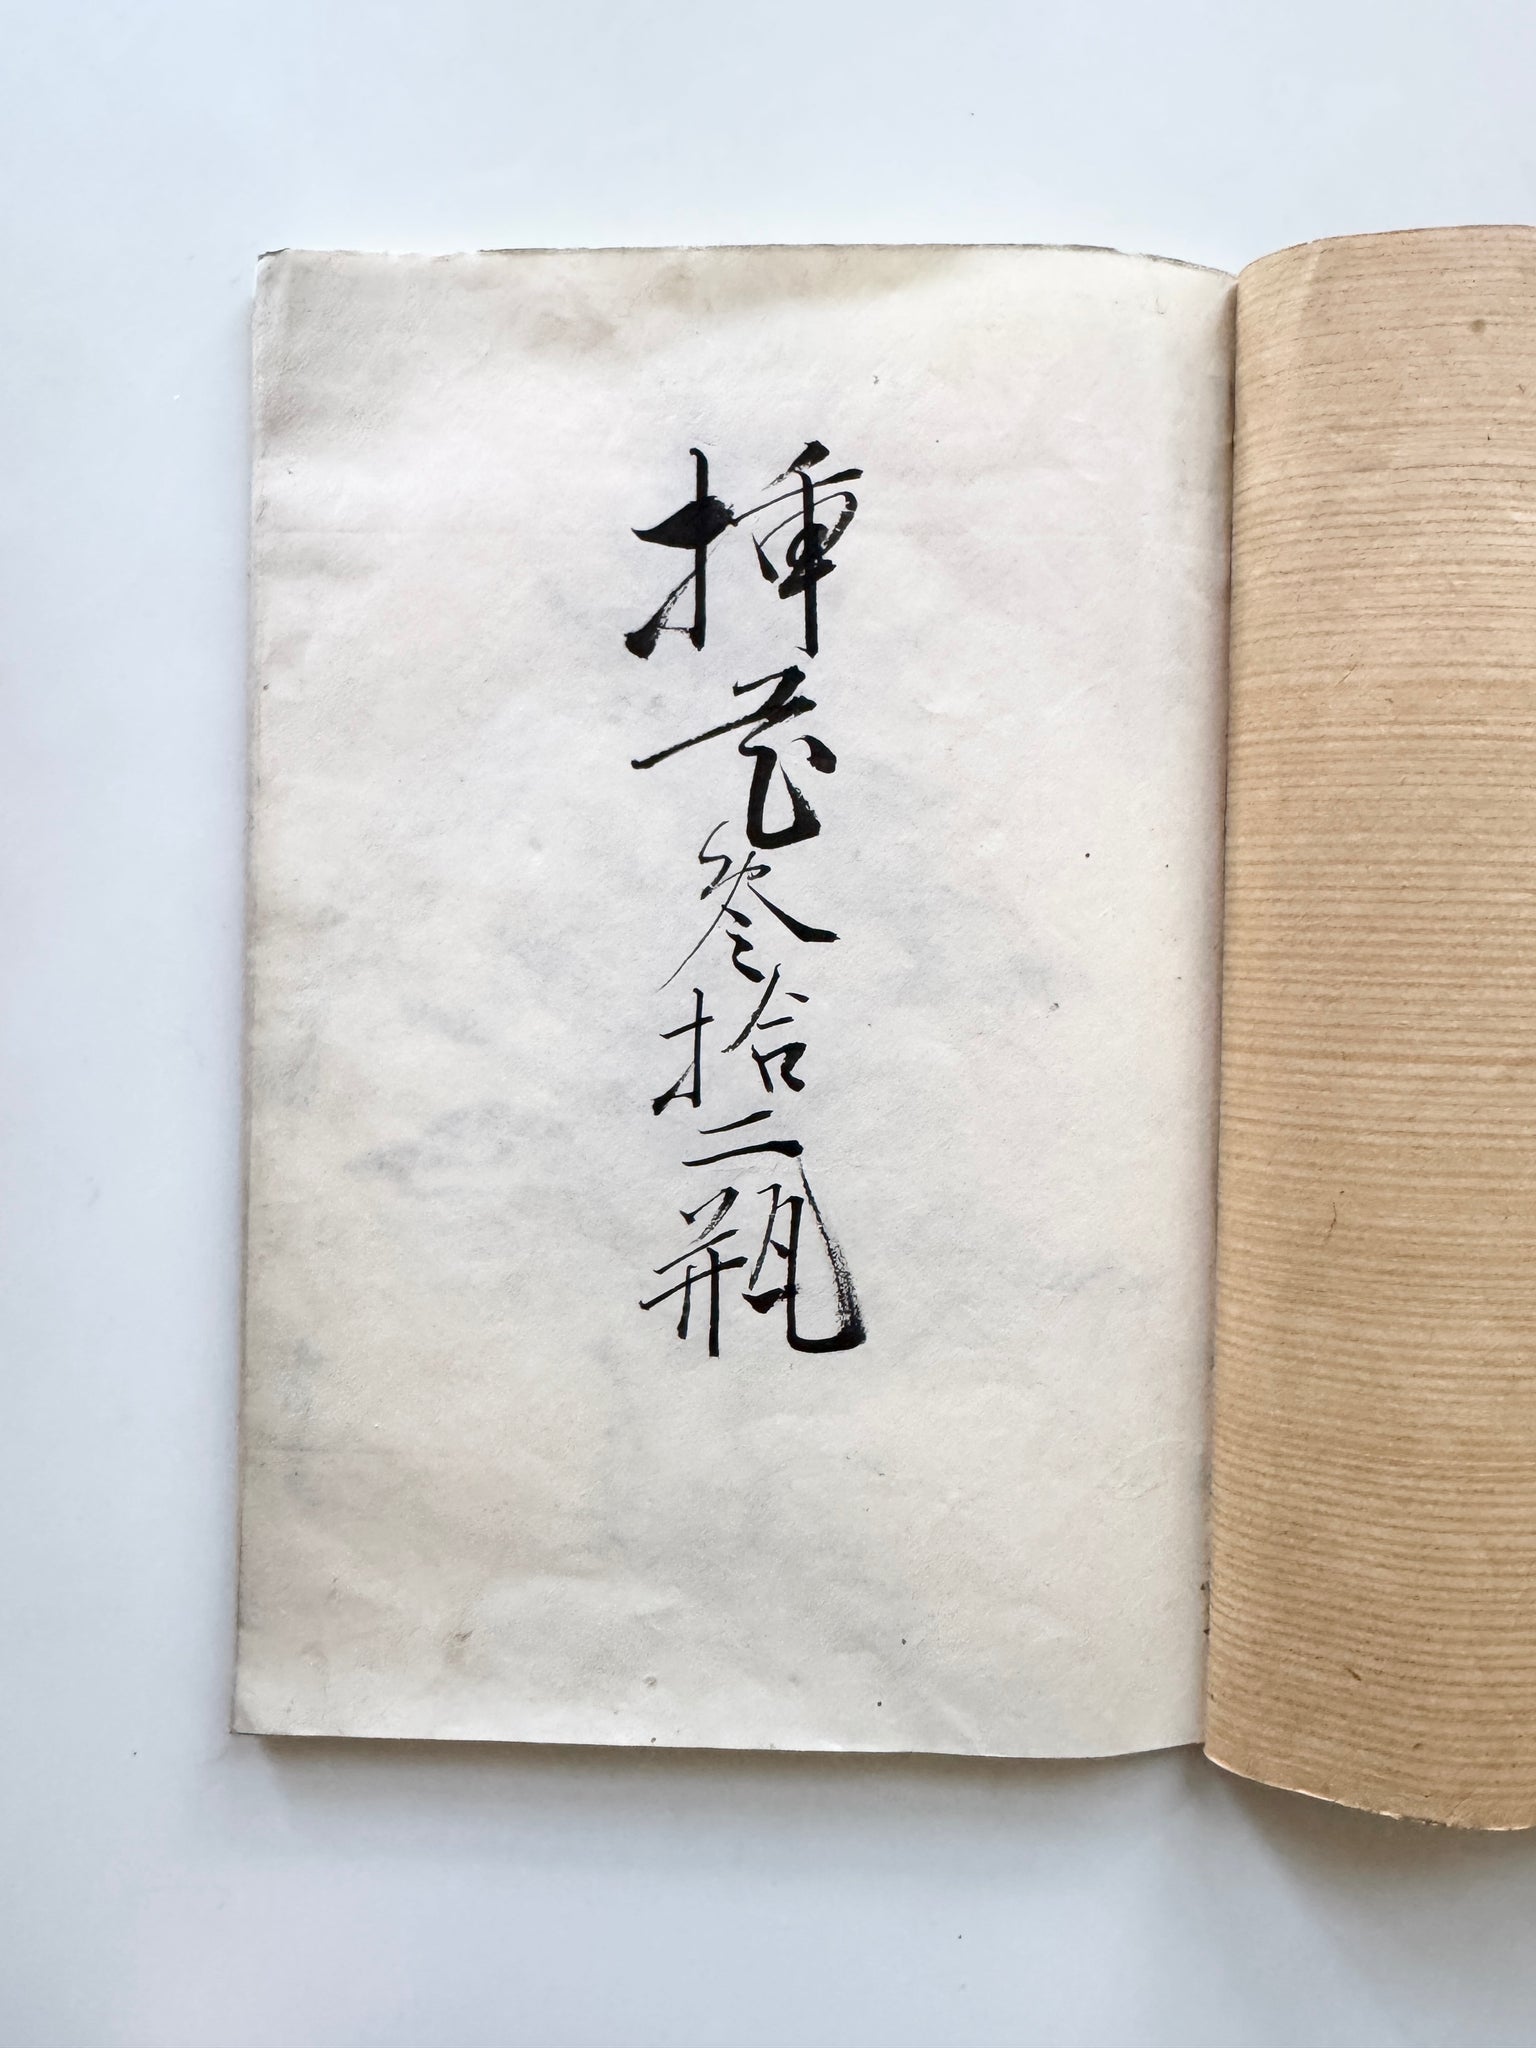 挿花参拾二瓶